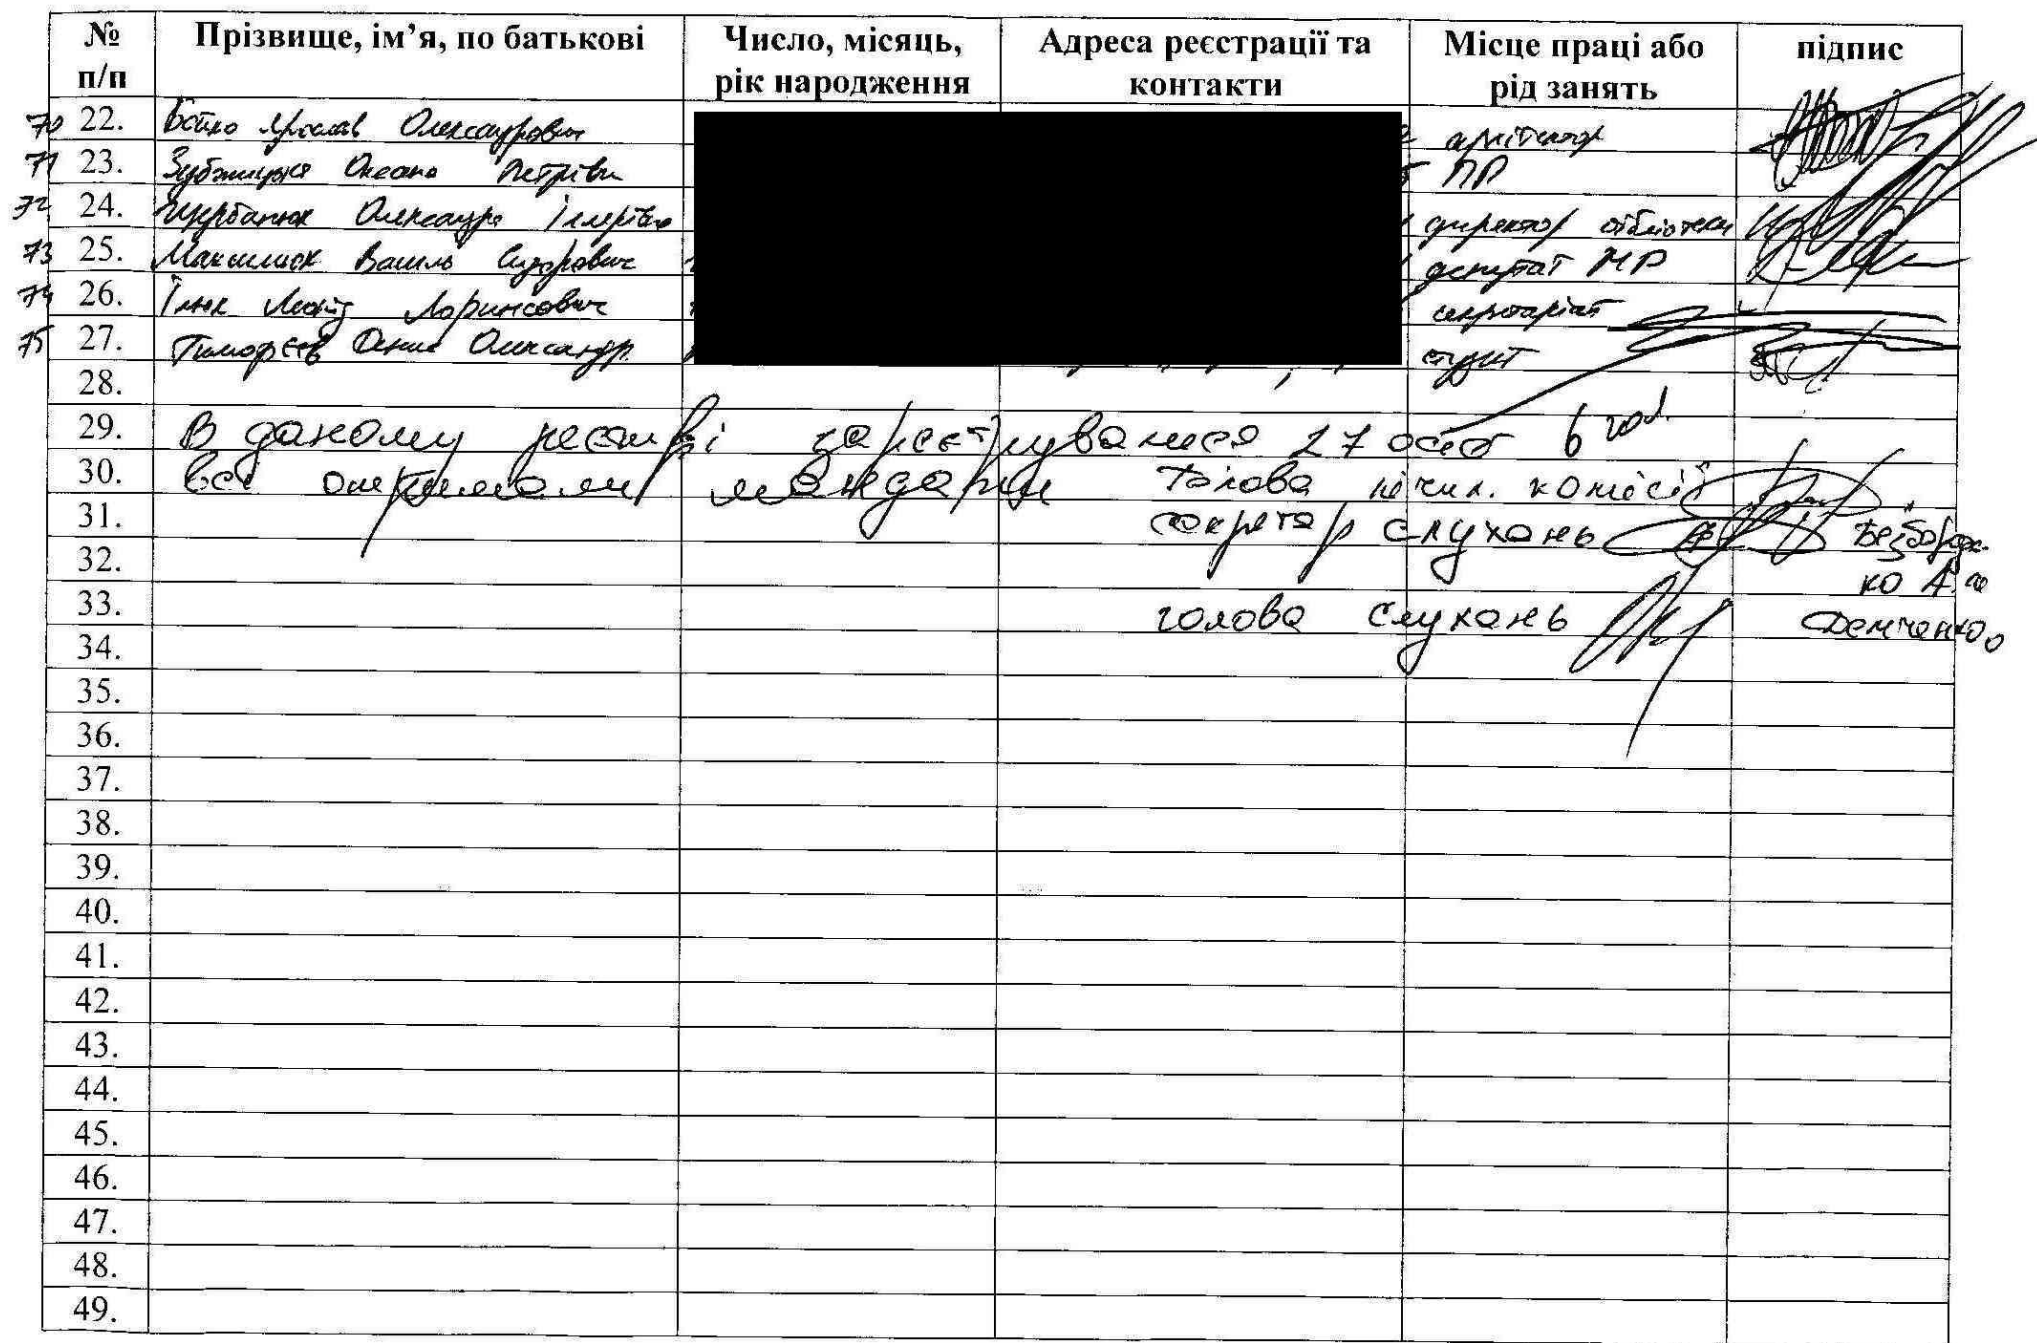 № п/п Прізвище, ім’я, по батькові Число, місяць, рік народження Адреса реєстрації та контакти Місце праці або рід занять підпис
70 22. Бойко Ярослав Олександрович архітектор
71 23. Оксана Петрівна ПР
72 24. Щербанюк Олександра директор бібліотеки
73 25. Максимюк Василь Сидорович депутат МР
74 26. секретаріат
75 27. Тимофєєв Денис Олександр студент
28.
29. В даному реєстрі зареєструвалися 27 осіб
30. всі отримали мандати Голова лічил. комісії
31. секретар слухань Безбород-
32. ко А.
33. голова слухань Демченко
34.
35.
36.
37.
38.
39.
40.
41.
42.
43.
44.
45.
46.
47.
48.
49.